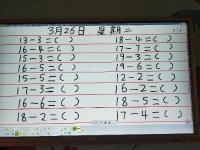 3月26日 星期二
13-3=( ) 18-4=( )
16-4=( ) 17-7=( )
15-3=( ) 19-3=( )
16-2=( ) 19-6=( )
15-5=( ) 12-2=( )
17-3=( ) 16-2=( )
16-6=( ) 18-5=( )
18-2=( ) 17-4=( )